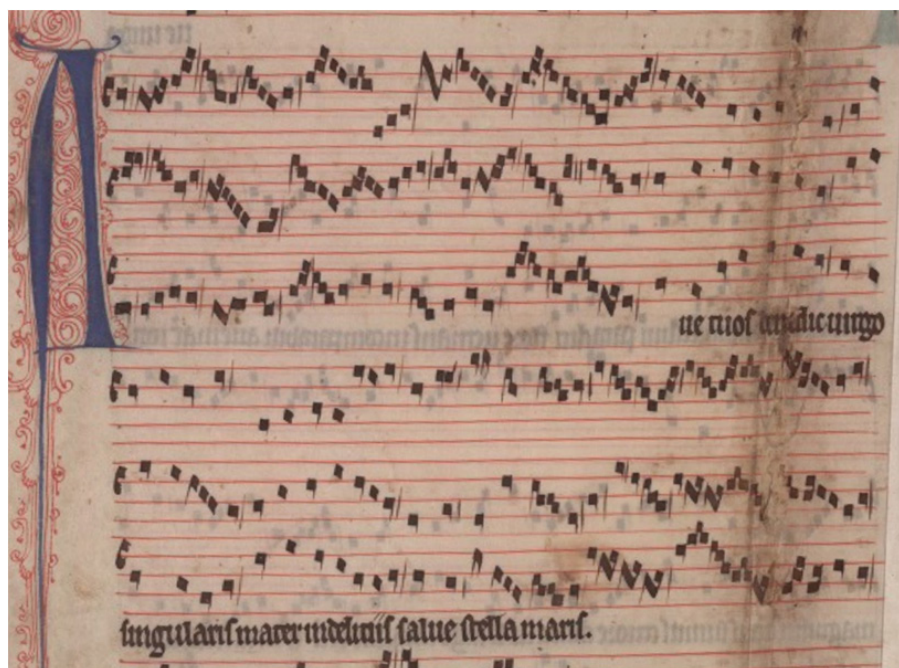 Aue tuos benedic uirgo
singularis mater indelitiis salue stella maris.